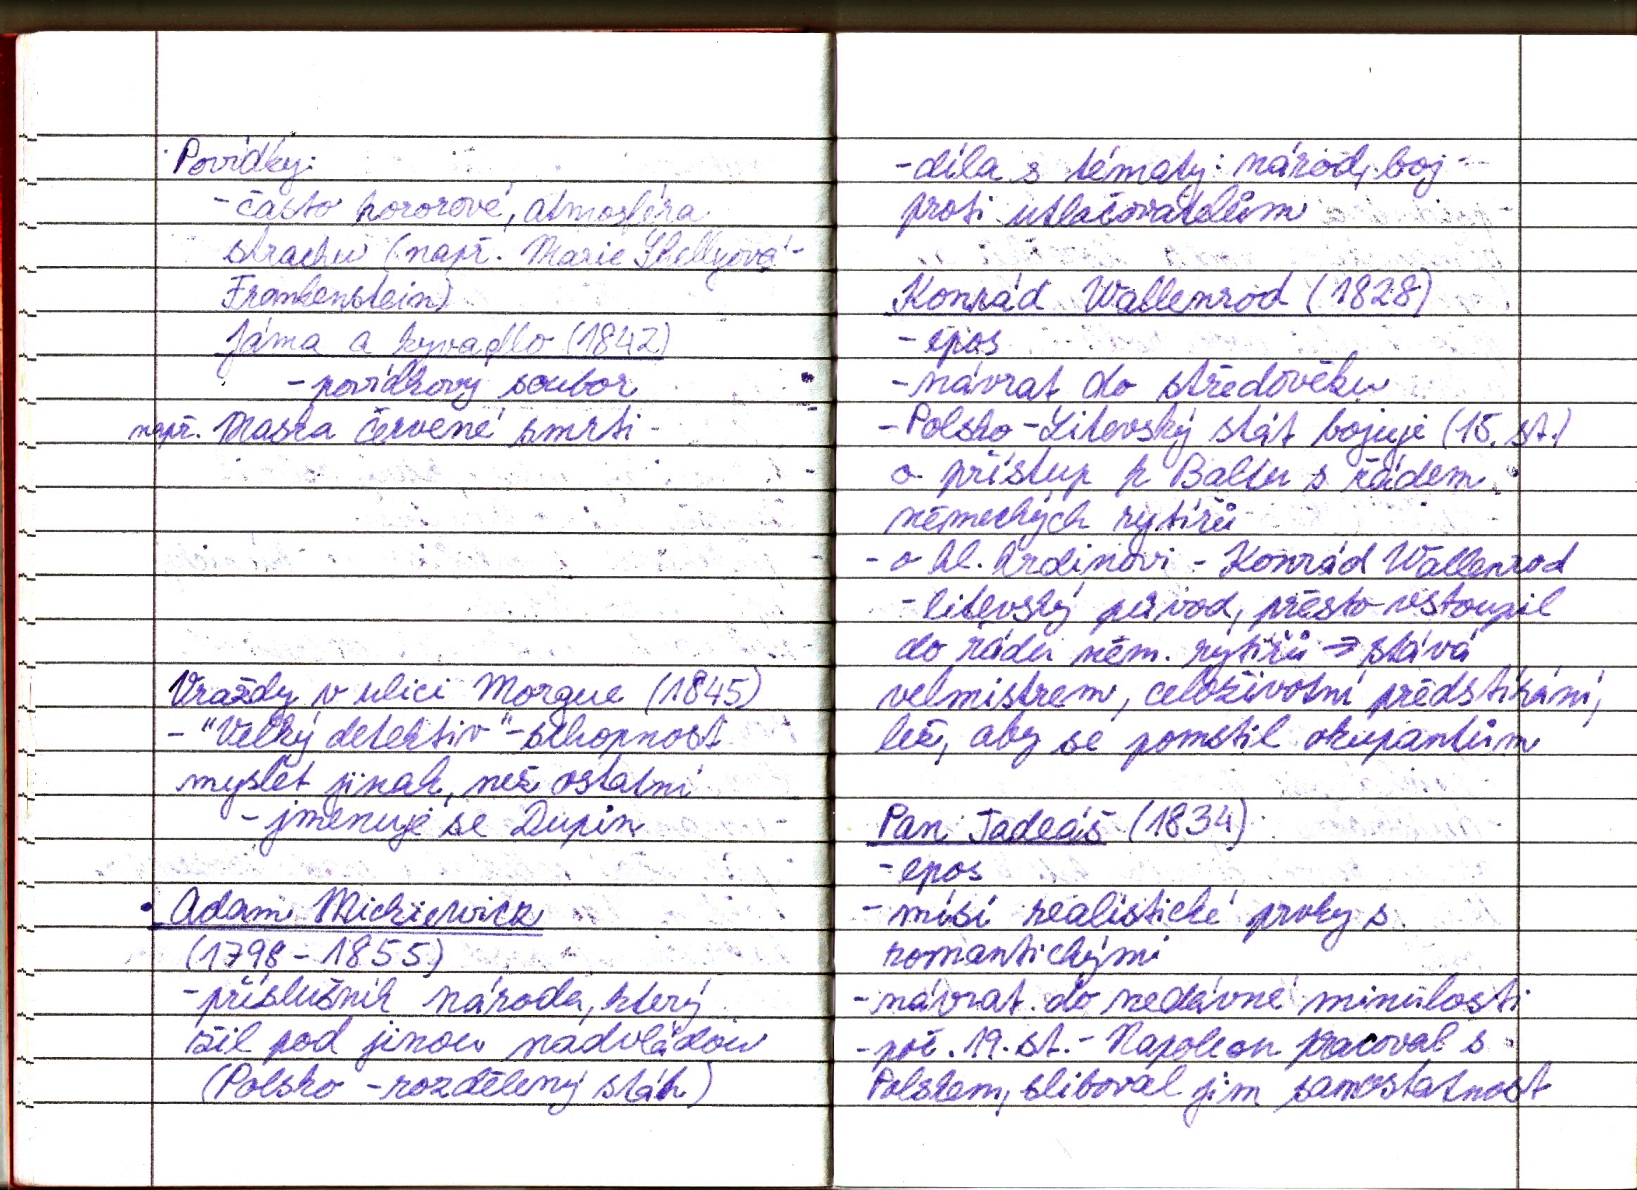 Povídky:
- často hororové, atmosféra
strachu (např. Marie Shellyová -
Frankenstein)
Jáma a kyvadlo (1842)
- povídkový soubor
např. Maska červené smrti -
Vraždy v ulici Morgue (1845)
- "Velký detektiv" - schopnost
myslet jinak, než ostatní
- jmenuje se Dupin
• Adam Mickiewicz
(1798 - 1855)
- příslušník národa, který
žil pod jinou nadvládou
(Polsko - rozdělený stát)
- díla s tématy: národ, boj -
proti utlačovatelům
Konrád Wallenrod (1828)
- epos
- návrat do středověku
- Polsko - Litevský stát bojuje (15. st.)
o přístup k Baltu s řádem
německých rytířů
- o hl. hrdinovi - Konrád Wallenrod
- litevský původ, přesto vstoupil
do řádu něm. rytířů → stává
velmistrem, celoživotní předstírání,
lež, aby se pomstil okupantům
Pan Tadeáš (1834)
- epos
- mísí realistické prvky s
romantickými
- návrat do nedávné minulosti
- poč. 19. st. - Napoleon pracoval s
Polskem, sliboval jim samostatnost